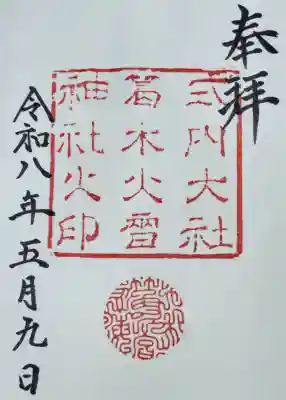 奉拝
式内大社
葛木火雷
神社之印
令和八年五月九日